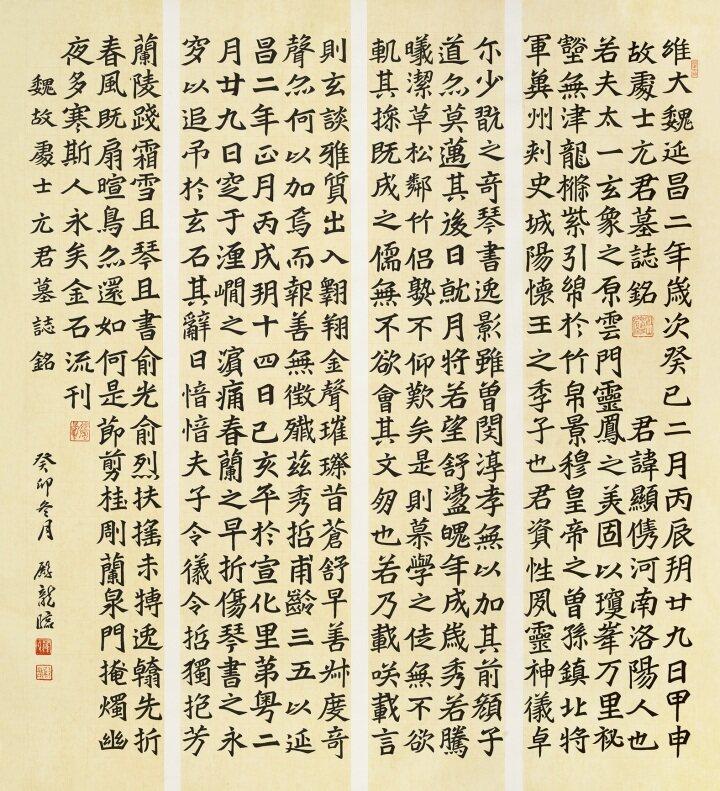 維大魏延昌二年歲次癸巳二月丙辰朔廿九日甲申
故處士元君墓誌銘　君諱顯儁河南洛陽人也
若夫太一玄象之原雲門靈鳳之美固以瓊峯万里秘
壑無津龍檦紫引綿於竹帛景穆皇帝之曾孫鎮北將
軍冀州刾史城陽懷王之季子也君資性夙靈神儀卓
尒少翫之奇琴書逸影雖曾閔淳孝無以加其前顏子
道亦莫邁其後日就月將若望舒盪魄年成歲秀若騰
曦潔草松鄰竹侶孰不仰歎矣是則慕學之徒無不欲
軌其操既成之儒無不欲會其文匆也若乃載咲載言
則玄談雅質出入翱翔金聲璀璨昔蒼舒早善艸度奇
聲亦何以加焉而報善無徵殲茲秀哲甫齡三五以延
昌二年正月丙戌朔十四日己亥卒於宣化里第粵二
月廿九日窆于瀍㵎之濵痛春蘭之早折傷琴書之永
穸以追吊於玄石其辭曰愔愔夫子令儀令哲獨抱芳
蘭陵踐霜雪且琴且書俞光俞烈扶搖未摶逸翰先折
春風既扇暄鳥亦還如何是節剪桂刪蘭泉門掩燭幽
夜多寒斯人永矣金石流刊
魏故處士元君墓誌銘
癸卯冬月 龍臨